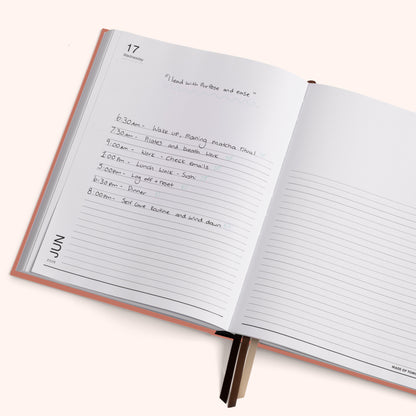 17
Wednesday
"I lead with Purpose and ease"
6:30am - Wake up, Morning Matcha ritual
7:30am - Pilates and breath work
9:00am - Work - Check emails
1:00pm - Lunch
5:00pm - Log off + reset
6:30pm - Dinner
8:00pm - Self love routine and wind down
JUN
MADE OF